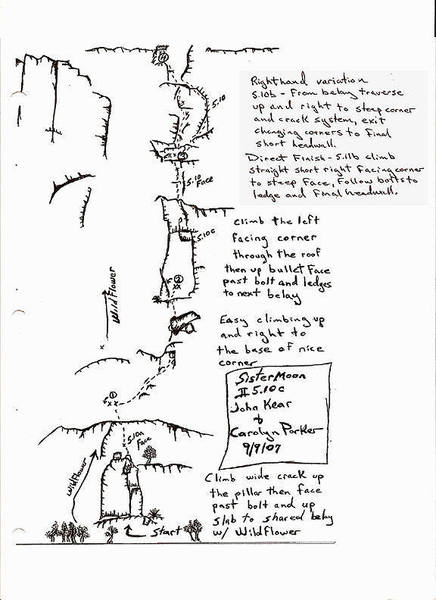 Righthand variation
5.10b - From belay traverse
up and right to steep corner
and crack system, exit
changing corners to final
short headwall.
Direct Finish - 5.11b climb
straight short right facing corner
to steep face, follow bolts to
ledge and final headwall.
5.10
5.10
Face
5.10c
climb the left
facing corner
through the roof
then up bullet face
past bolt and ledges
to next belay
2
xx
Wildflower
x
Easy climbing up
and right to
the base of nice
corner
1
xx
Sister Moon
II 5.10c
John Kear
&
Carolyn Parker
9/9/07
5.10a
Face
Wildflower
Climb wide crack up
the pillar then face
past bolt and up
slab to shared belay
w/ Wildflower
Start